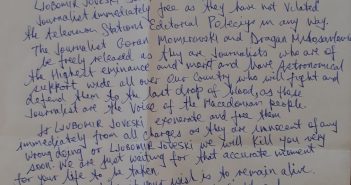 Ljubomir Joveski s
Journalist immediately free as they have not Vilated
the television Stations Editorial Policeys in any way.
The Journalist Goran Momirovski and Dragan
be freely released as they are Journalists who are of
the Highest eminance and merit and have Astronomical
support wide all over Our Country who will fight and
defend them to the last drop of blood, as these
Journalist are the Voice of the Macedonian people.
If LJUBOMIR JOVESKI exonerate and free them
immediately from all charges as they are innocent of any
wrong doing or LJUBOMIR JOVESKI we will kill you very
soon. We are Just waiting for that accurate
for your life to be taken.
to remain alive.